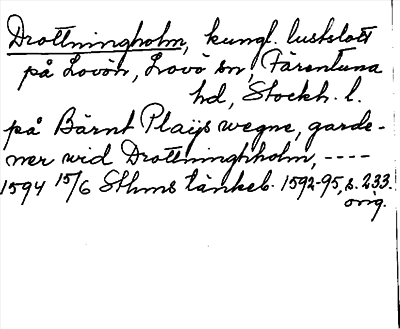 Drottningholm, kungl. lustslott
på Lovön, Lovö sn, Färentuna
hd, Stockh. l.
på Bärnt Plaijs wegne, garde-
ner wid Drottninghholm, ----
1594 15/6 Sthms tänkeb. 1592-95, s. 233.
orig.